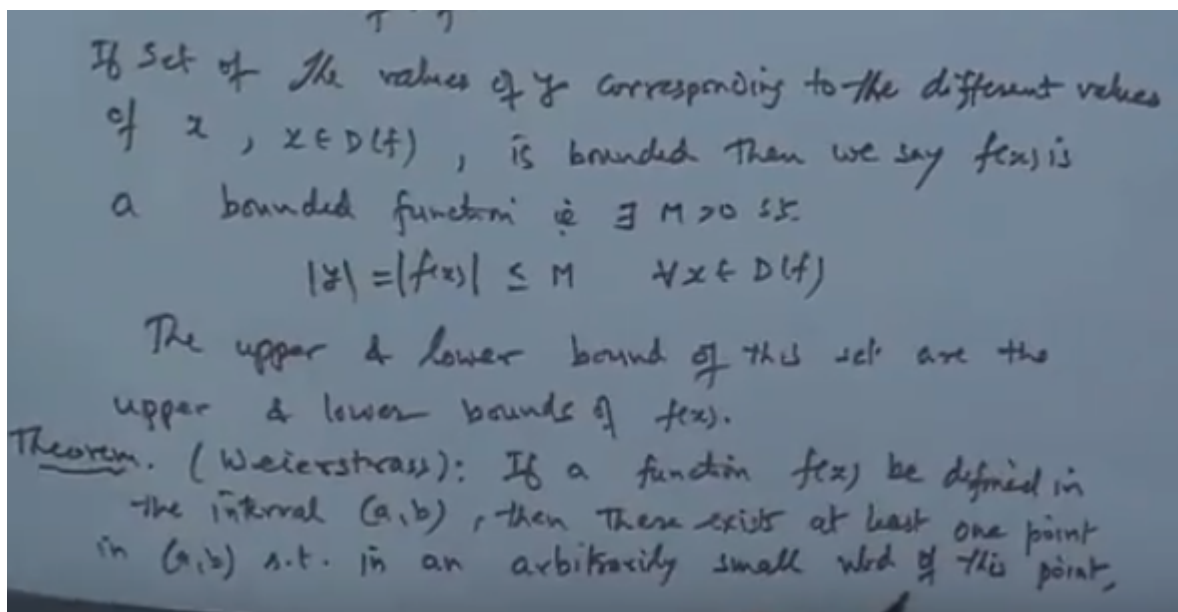 If Set of the values of y corresponding to the different values
of x , x ∈ D(f) , is bounded then we say f(x) is
a bounded function ie ∃ M >0 s.t.
|y| = |f(x)| ≤ M ∀ x ∈ D(f)
The upper & lower bound of this set are the
upper & lower bounds of f(x).
Theorem. (Weierstrass): If a function f(x) be defined in
the interval (a,b) , then there exists at least one point
in (a,b) s.t. in an arbitrarily small nbd of this point,